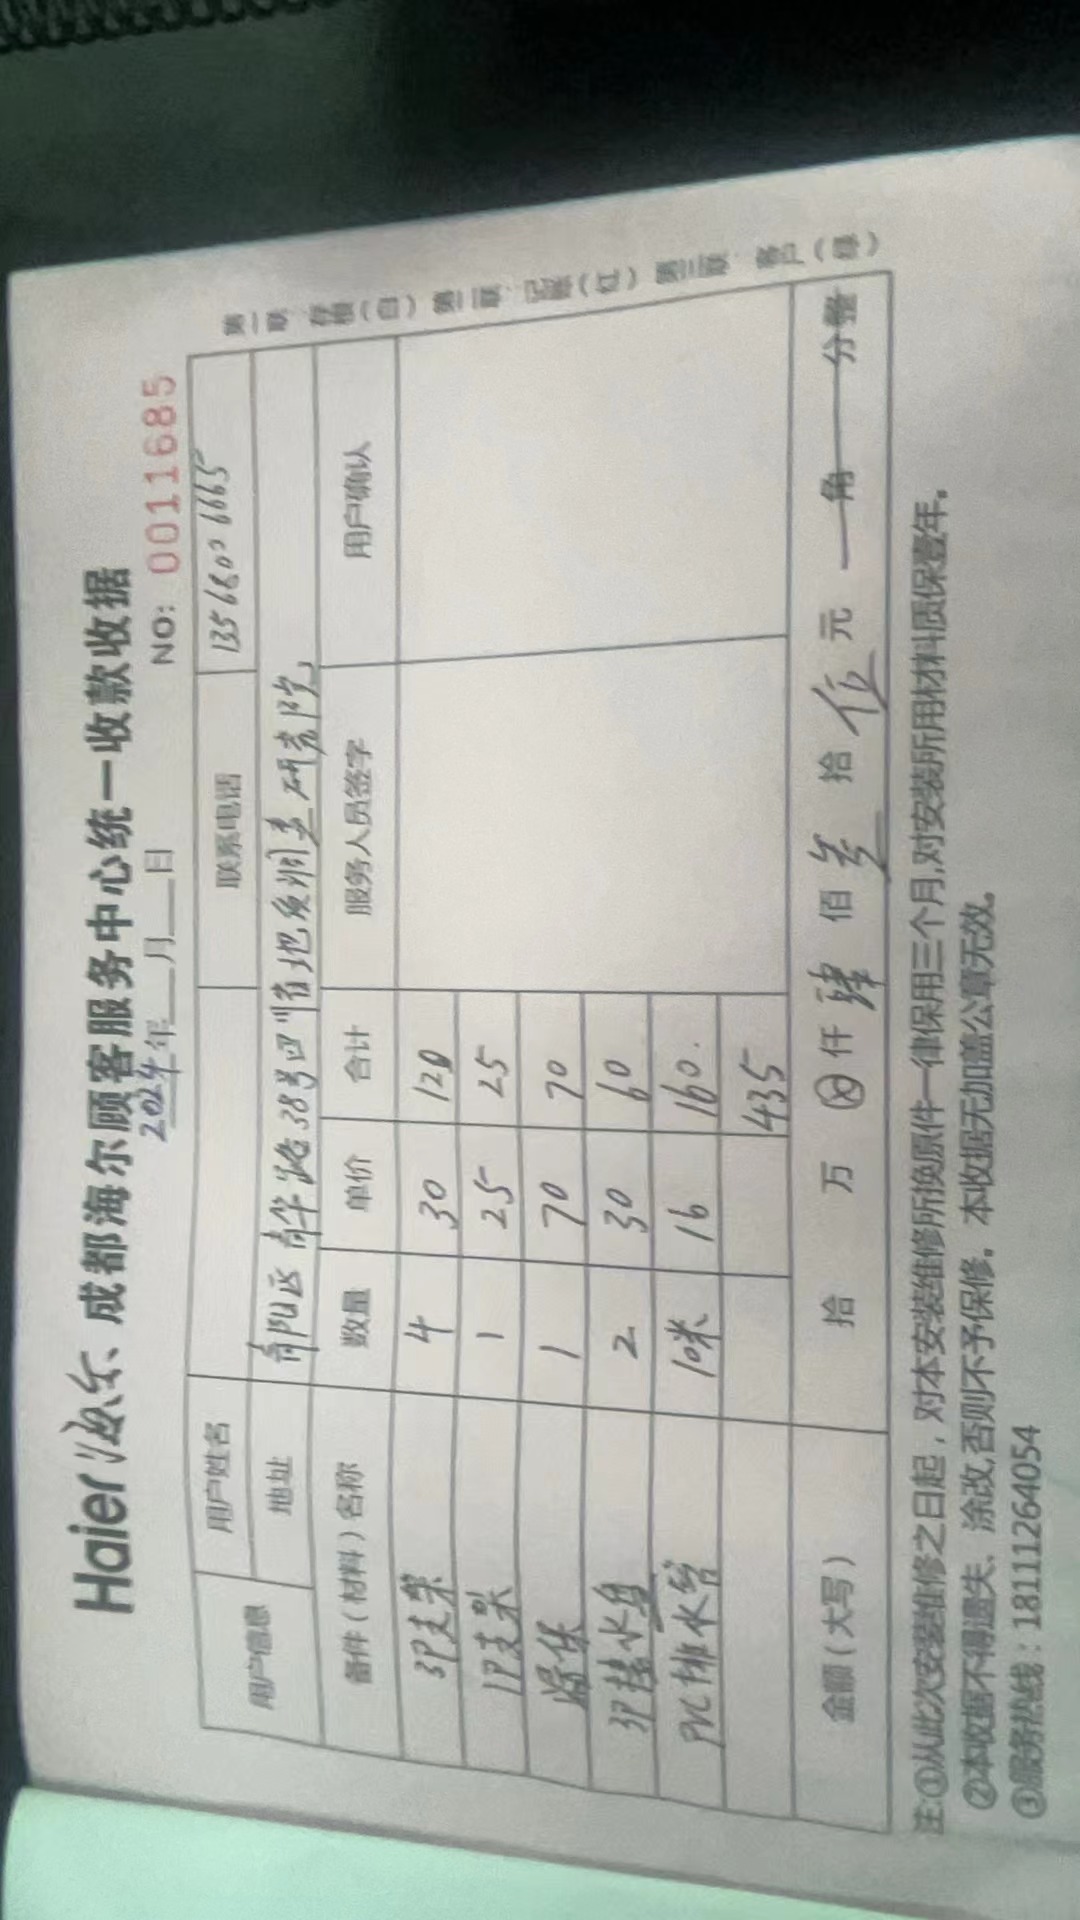 Haier 海尔、成都海尔顾客服务中心统一收款收据
2024年 月 日 NO: 0011685
用户信息 用户姓名 联系电话 13568006665
地址 青阳区青华路38号四川省地质调查研究院
备件(材料)名称 数量 单价 合计 服务人员签字 用户确认
3P支架 4 30 120
1P支架 1 25 25
1 70 70
3P接水盘 2 30 60
PVC排水管 10米 16 160.
435
金额(大写) 拾 万 ⊗ 仟 肆 佰 叁 拾 伍 元 角 分整
第一联 存根(白) 第二联 记账(红) 第三联 客户(绿)
注:①从此次安装维修之日起,对本安装维修所换原件一律保用三个月,对安装所用材料质保壹年。
②本收据不得遗失、涂改,否则不予保修。本收据无加盖公章无效。
③服务热线:18111264054